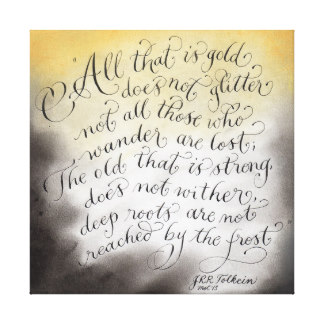 "All that is gold
does not glitter
not all those who
wander are lost;
The old that is strong
does not wither,
deep roots are not
reached by the frost
JRR Tolkein